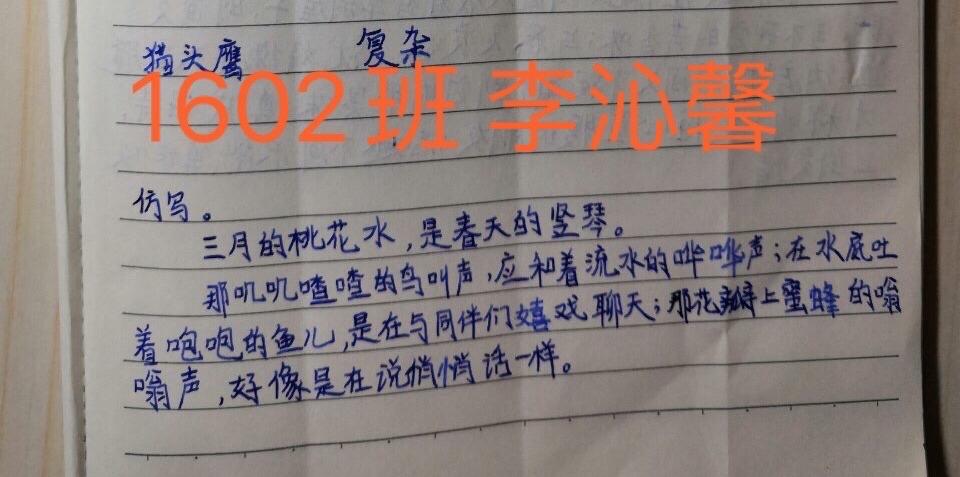 猫头鹰 复杂
1602班 李沁馨
仿写。
三月的桃花水,是春天的竖琴。
那叽叽喳喳的鸟叫声,应和着流水的哗哗声;在水底吐
着咆咆的鱼儿,是在与同伴们嬉戏聊天;那花瓣上蜜蜂的嗡
嗡声,好像是在说悄悄话一样。